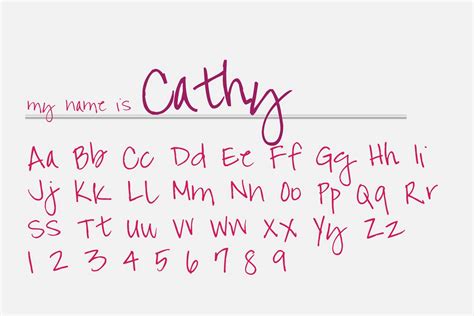 my name is Cathy
Aa Bb Cc Dd Ee Ff Gg Hh Ii
Jj Kk Ll Mm Nn Oo Pp Qq Rr
Ss Tt Uu Vv Ww Xx Yy Zz
1 2 3 4 5 6 7 8 9